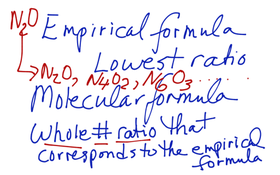 N₂O Empirical formula
Lowest ratio
→ N₂O, N₄O₂, N₆O₃ ......
Molecular formula
Whole # ratio that
corresponds to the empirical
formula